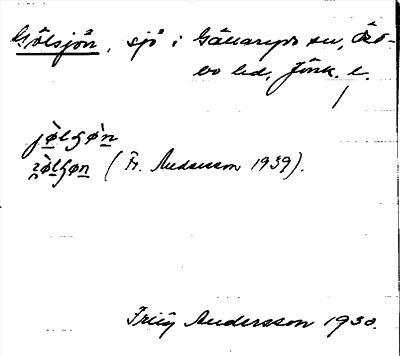 Gölsjön, sjö i Gällaryds sn, Öst-
bo hd, Jönk. l.
jø̀lʃø̀n
(Fr. Andersson 1939).
Frig Andersson 1930.